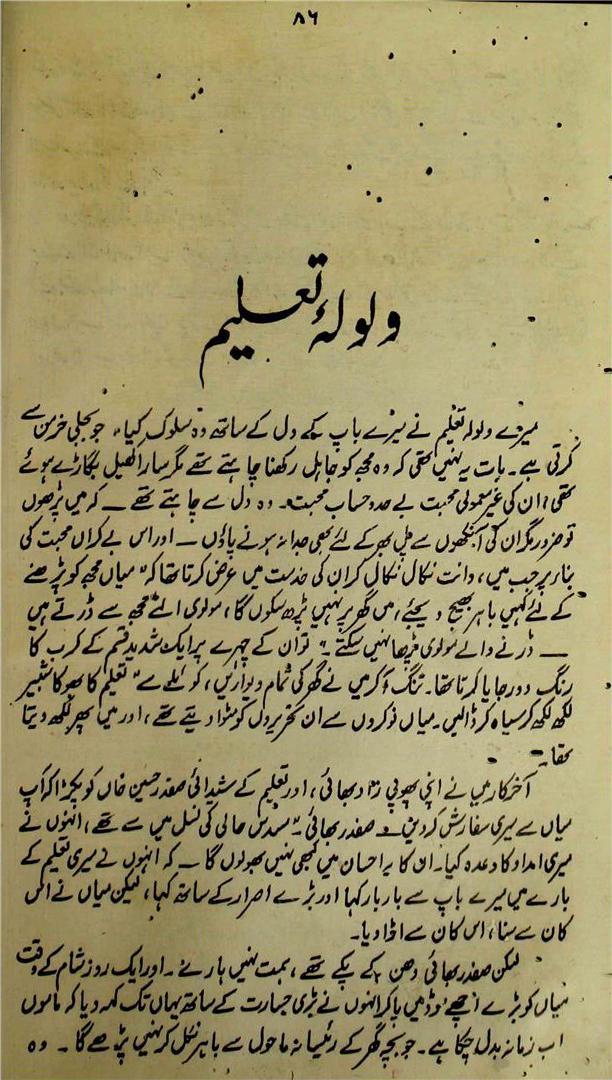 ۸۶
ولولۂ تعلیم
میرے ولولۂ تعلیم نے میرے باپ کے دل کے ساتھ وہ سلوک کیا، جو بجلی خرمن سے
کرتی ہے۔ بات یہ نہیں تھی کہ وہ مجھ کو جاہل رکھنا چاہتے تھے مگر سارا کھیل بگاڑے ہوئے
تھی، ان کی غیر معمولی محبت بے حد و حساب محبت۔ وہ دل سے چاہتے تھے — کہ میں پڑھوں
تو ضرور مگر ان کی آنکھوں سے پل بھر کے لئے بھی جدا نہ ہونے پاؤں — اور اس بے کراں محبت کی
بناء پر جب میں، دانت نکال نکال کر ان کی خدمت میں عرض کرتا تھا کہ "میاں مجھ کو پڑھنے
کے لئے کہیں باہر بھیج دیجئے، میں گھر پر نہیں پڑھ سکوں گا، مولوی الٹے مجھ سے ڈرتے ہیں
— ڈرنے والے مولوی پڑھا نہیں سکتے۔" تو ان کے چہرے پر ایک شدید قسم کے کرب کا
رنگ دوڑ جایا کرتا تھا۔ تنگ آ کر میں نے گھر کی تمام دیواریں، کوئلے سے "تعلیم کا بھوکا شبیر
لکھ لکھ کر سیاہ کر ڈالیں۔ میاں نوکروں سے ان تحریروں کو مٹوا دیتے تھے، اور میں پھر لکھ دیتا
تھا۔
آخر کار میں نے اپنی پھوپی زاد بھائی، اور تعلیم کے شیدائی صفدر حسین خاں کو پکڑا کہ آپ
میاں سے میری سفارش کر دیں۔ صفدر بھائی۔ "مسدس حالی کی نسل میں سے تھے، انہوں نے
میری امداد کا وعدہ کیا۔ ان کا یہ احسان میں کبھی نہیں بھولوں گا — کہ انہوں نے میری تعلیم کے
بارے میں میرے باپ سے بار بار کہا اور بڑے اصرار کے ساتھ کہا، لیکن میاں نے اس
کان سے سنا، اس کان سے اڑا دیا۔
لیکن صفدر بھائی دھن کے پکے تھے، ہمت نہیں ہارے۔ اور ایک روز شام کے وقت
میاں کو بڑے اچھے موڈ میں پا کر انہوں نے بڑی جسارت کے ساتھ یہاں تک کہہ دیا کہ ماموں
اب زمانہ بدل چکا ہے۔ جو بچہ گھر کے رئیسانہ ماحول سے باہر نکل کر نہیں پڑھے گا۔ وہ